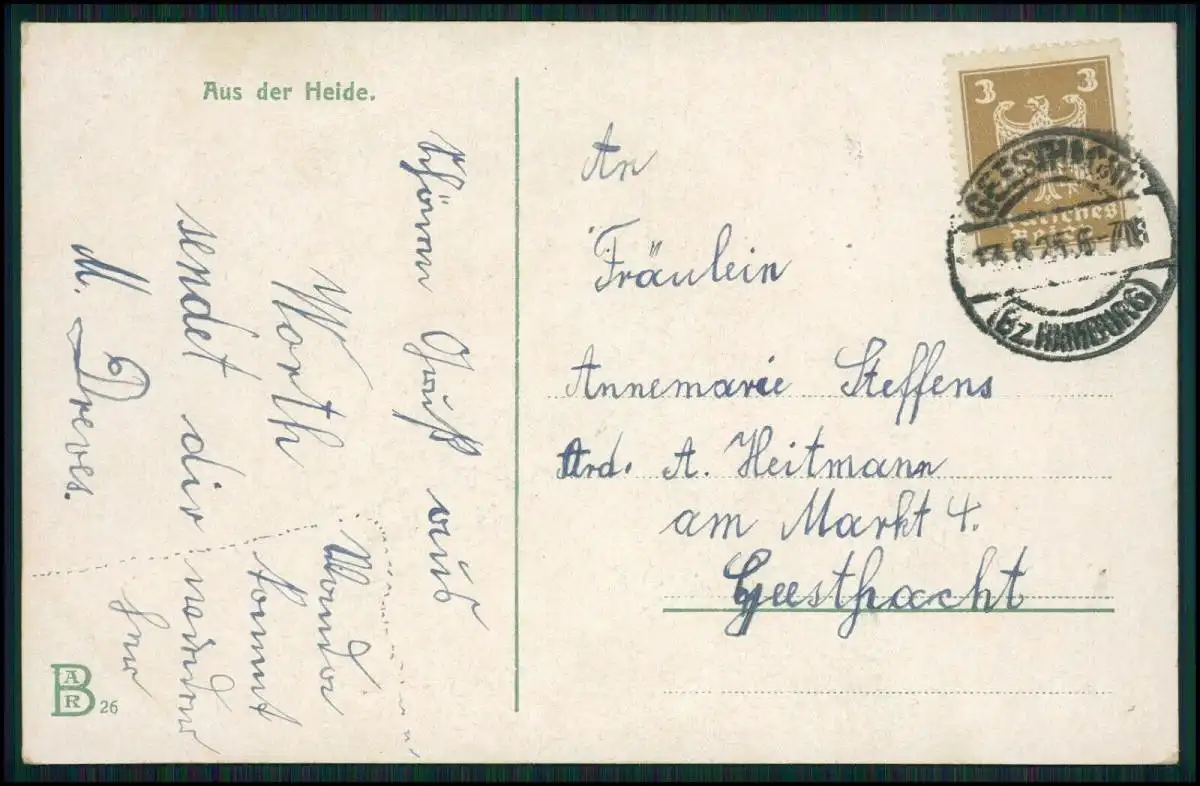 Aus der Heide.
3 3
Deutsches
Reich
GEESTHACHT
13.8.25.6-7N
(BZ. HAMBURG)
An
Fräulein
Annemarie Steffens
Adr. A. Heitmann
am Markt 4.
Geesthacht
Gruß aus
Worth
sendet dir
M. Dreves.
BAR
26